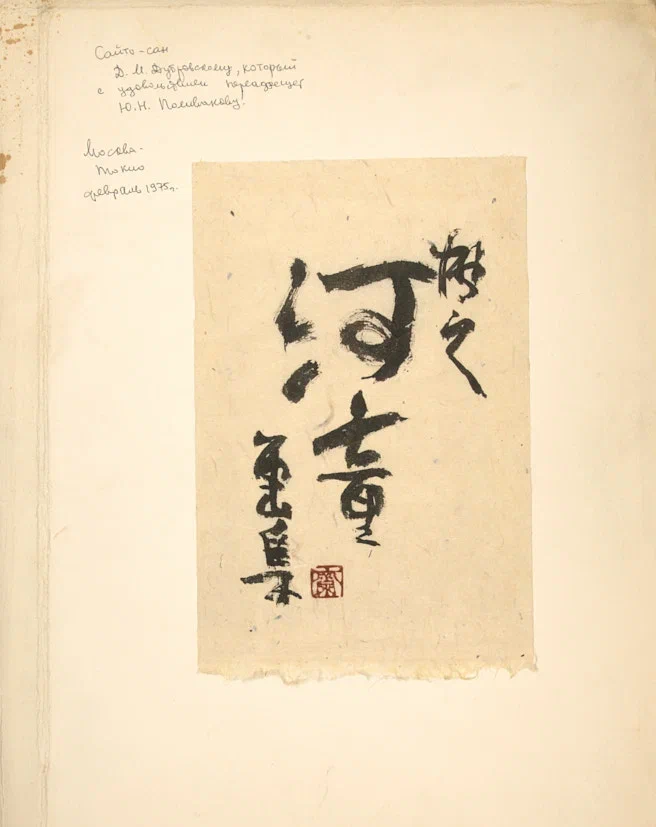 Сайто-сан
Д. М. Дубровскому, который
с удовольствием передает
Ю.Н. Поливанову.
Москва-
Токио
февраль 1975г.
之
河童
画集